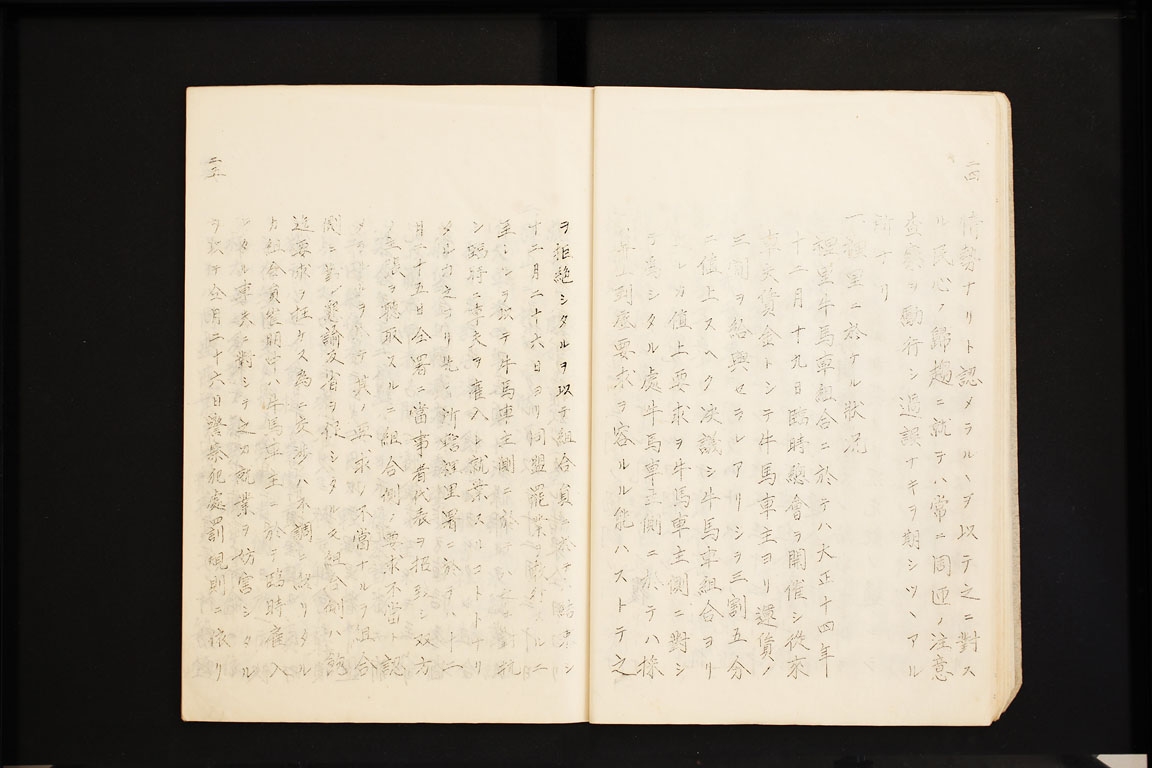 二四
情勢ナリト認メラルヽヲ以テ之ニ對ス
ル民心ノ歸趨ニ就テハ常ニ周匝ノ注意
査察ヲ勵行シ過誤ナキヲ期シツヽアル
所ナリ
一、裡里ニ於ケル狀況
裡里牛馬車組合ニ於テハ大正十四年
十二月十九日臨時總會ヲ開催シ從來
車夫賃金トシテ牛馬車主ヨリ運賃ノ
三割ヲ給與セラレアリシヲ三割五分
ニ値上スヘク決議シ牛馬車組合ヨリ
之レカ値上要求ヲ牛馬車主側ニ對シ
為シタル處牛馬車主側ニ於テハ採
到底要求ヲ容ルル能ハストテ之
二五
ヲ拒絶シタルヲ以テ組合員ニ於テ
十二月二十六日ヨリ同盟罷業
至ヽシヲ以テ牛馬車主側ニ於テハ之ニ對抗
シ臨時ニ車夫ヲ雇入レ就業スルコトトナリ
タル 之ヨリ先 所轄裡里署ニ於テハ十二
月二十五日仝署ニ當事者代表ヲ招致シ双方
ノ主張ヲ聴取スルニ組合側ノ要求不當ト認
メラ 其ノ要求ノ不當ナルヲ組合
側ニ對シ懇諭反省ヲ促シタルモ組合側ハ
迄要求ヲ枉ケス為ニ交渉ハ不調 終リタル
カ組合員 ハ牛馬車主ニ於テ臨時雇入
レタル車夫ニ對シテ之カ就業ヲ妨害シタル
ヲ以テ仝月二十六日警察犯處罰規則ニ依リ